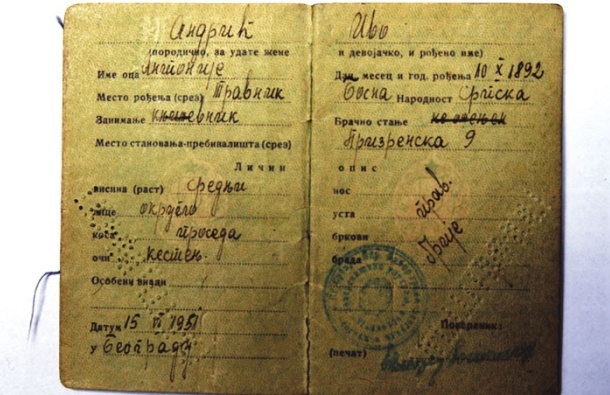 Андрић
(породично, за удате жене
Име оца Антоније
Место рођења (срез) Травник
Занимање књижевник
Место становања-пребивалишта (срез)
Лични
висина (раст) средњи
лице округло
коса проседа
очи кестењ.
Особени знаци
Датум 15 VI 1951
у Београду
Иво
и девојачко, и рођено име)
Дан месец и год. рођења 10 X 1892
Босна Народност Српска
Брачно стање
Призренска 9
опис
нос прав.
уста
бркови брије
брада
Повереник:
(печат)